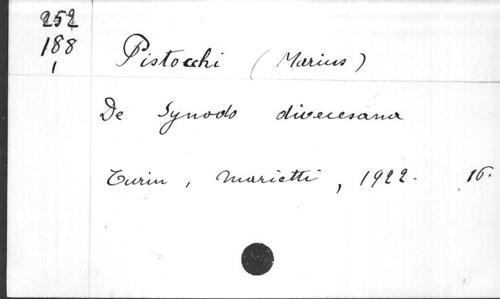 252
188
1
Pistocchi (Marius)
De Synodo dioecesana
Turin, Marietti, 1922. 16.